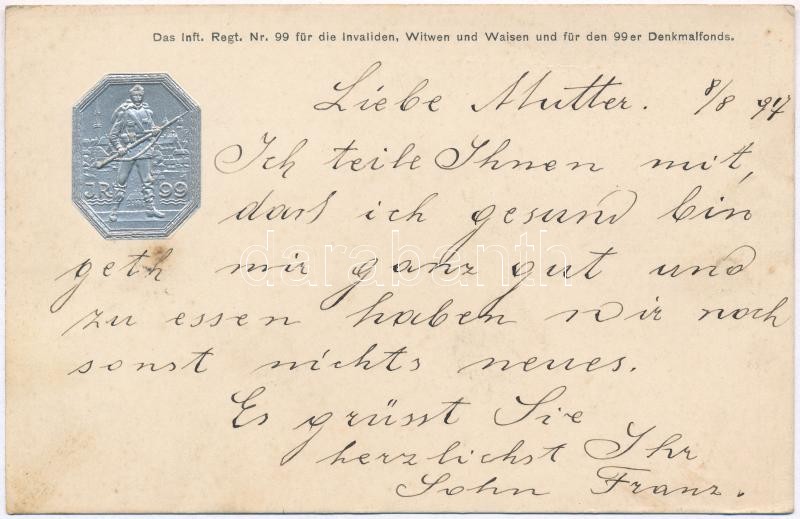 Das Inft. Regt. Nr. 99 für die Invaliden, Witwen und Waisen und für den 99er Denkmalfonds.
Liebe Mutter. 8/8 917
Ich teile Ihnen mit,
J.R. 99
dars ich gesund bin
geth mir ganz gut und
zu essen haben wir noch
sonst nichts neues.
Es grüsst Sie
herzlichst Ihr
Sohn Franz.
darabanth